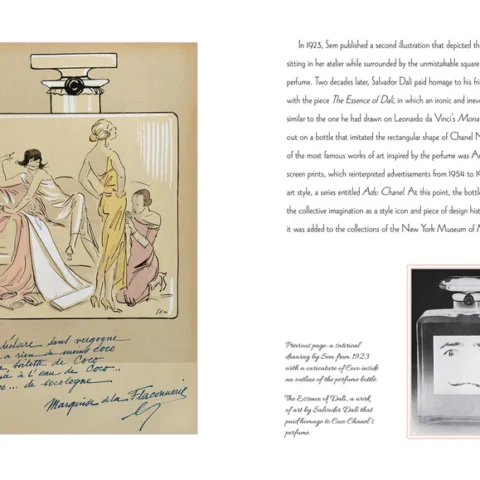 SEM
déclare sans vergogne
a rien de moins coco
toilette de Coco
à l'eau de Coco...
co... de cocologne
Marquise de la Flaconnerie
In 1923, Sem published a second illustration that depicted the
sitting in her atelier while surrounded by the unmistakable square
perfume. Two decades later, Salvador Dalí paid homage to his fri
with the piece The Essence of Dalí, in which an ironic and irreve
similar to the one he had drawn on Leonardo da Vinci's Mona
out on a bottle that imitated the rectangular shape of Chanel N
of the most famous works of art inspired by the perfume was An
screen prints, which reinterpreted advertisements from 1954 to 19
art style, a series entitled Ads: Chanel. At this point, the bottl
the collective imagination as a style icon and piece of design his
it was added to the collections of the New York Museum of M
Previous page: a satirical
drawing by Sem from 1923
with a caricature of Coco inside
an outline of the perfume bottle.
The Essence of Dalí, a work
of art by Salvador Dalí that
paid homage to Coco Chanel's
perfume.